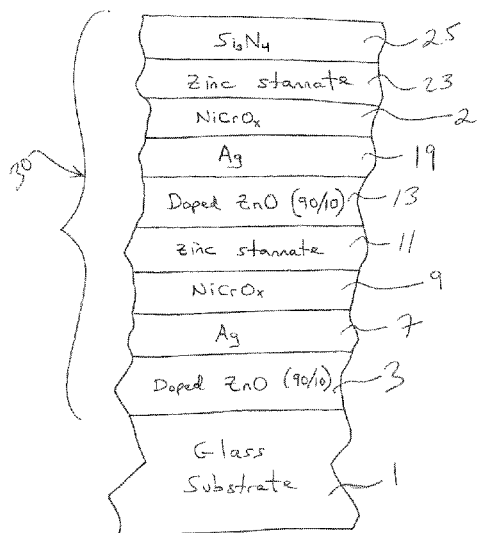 Si3N4 25
Zinc stannate 23
NiCrOx 2
Ag 19
30
Doped ZnO (90/10) 13
Zinc stannate 11
NiCrOx 9
Ag 7
Doped ZnO (90/10) 3
Glass
Substrate 1